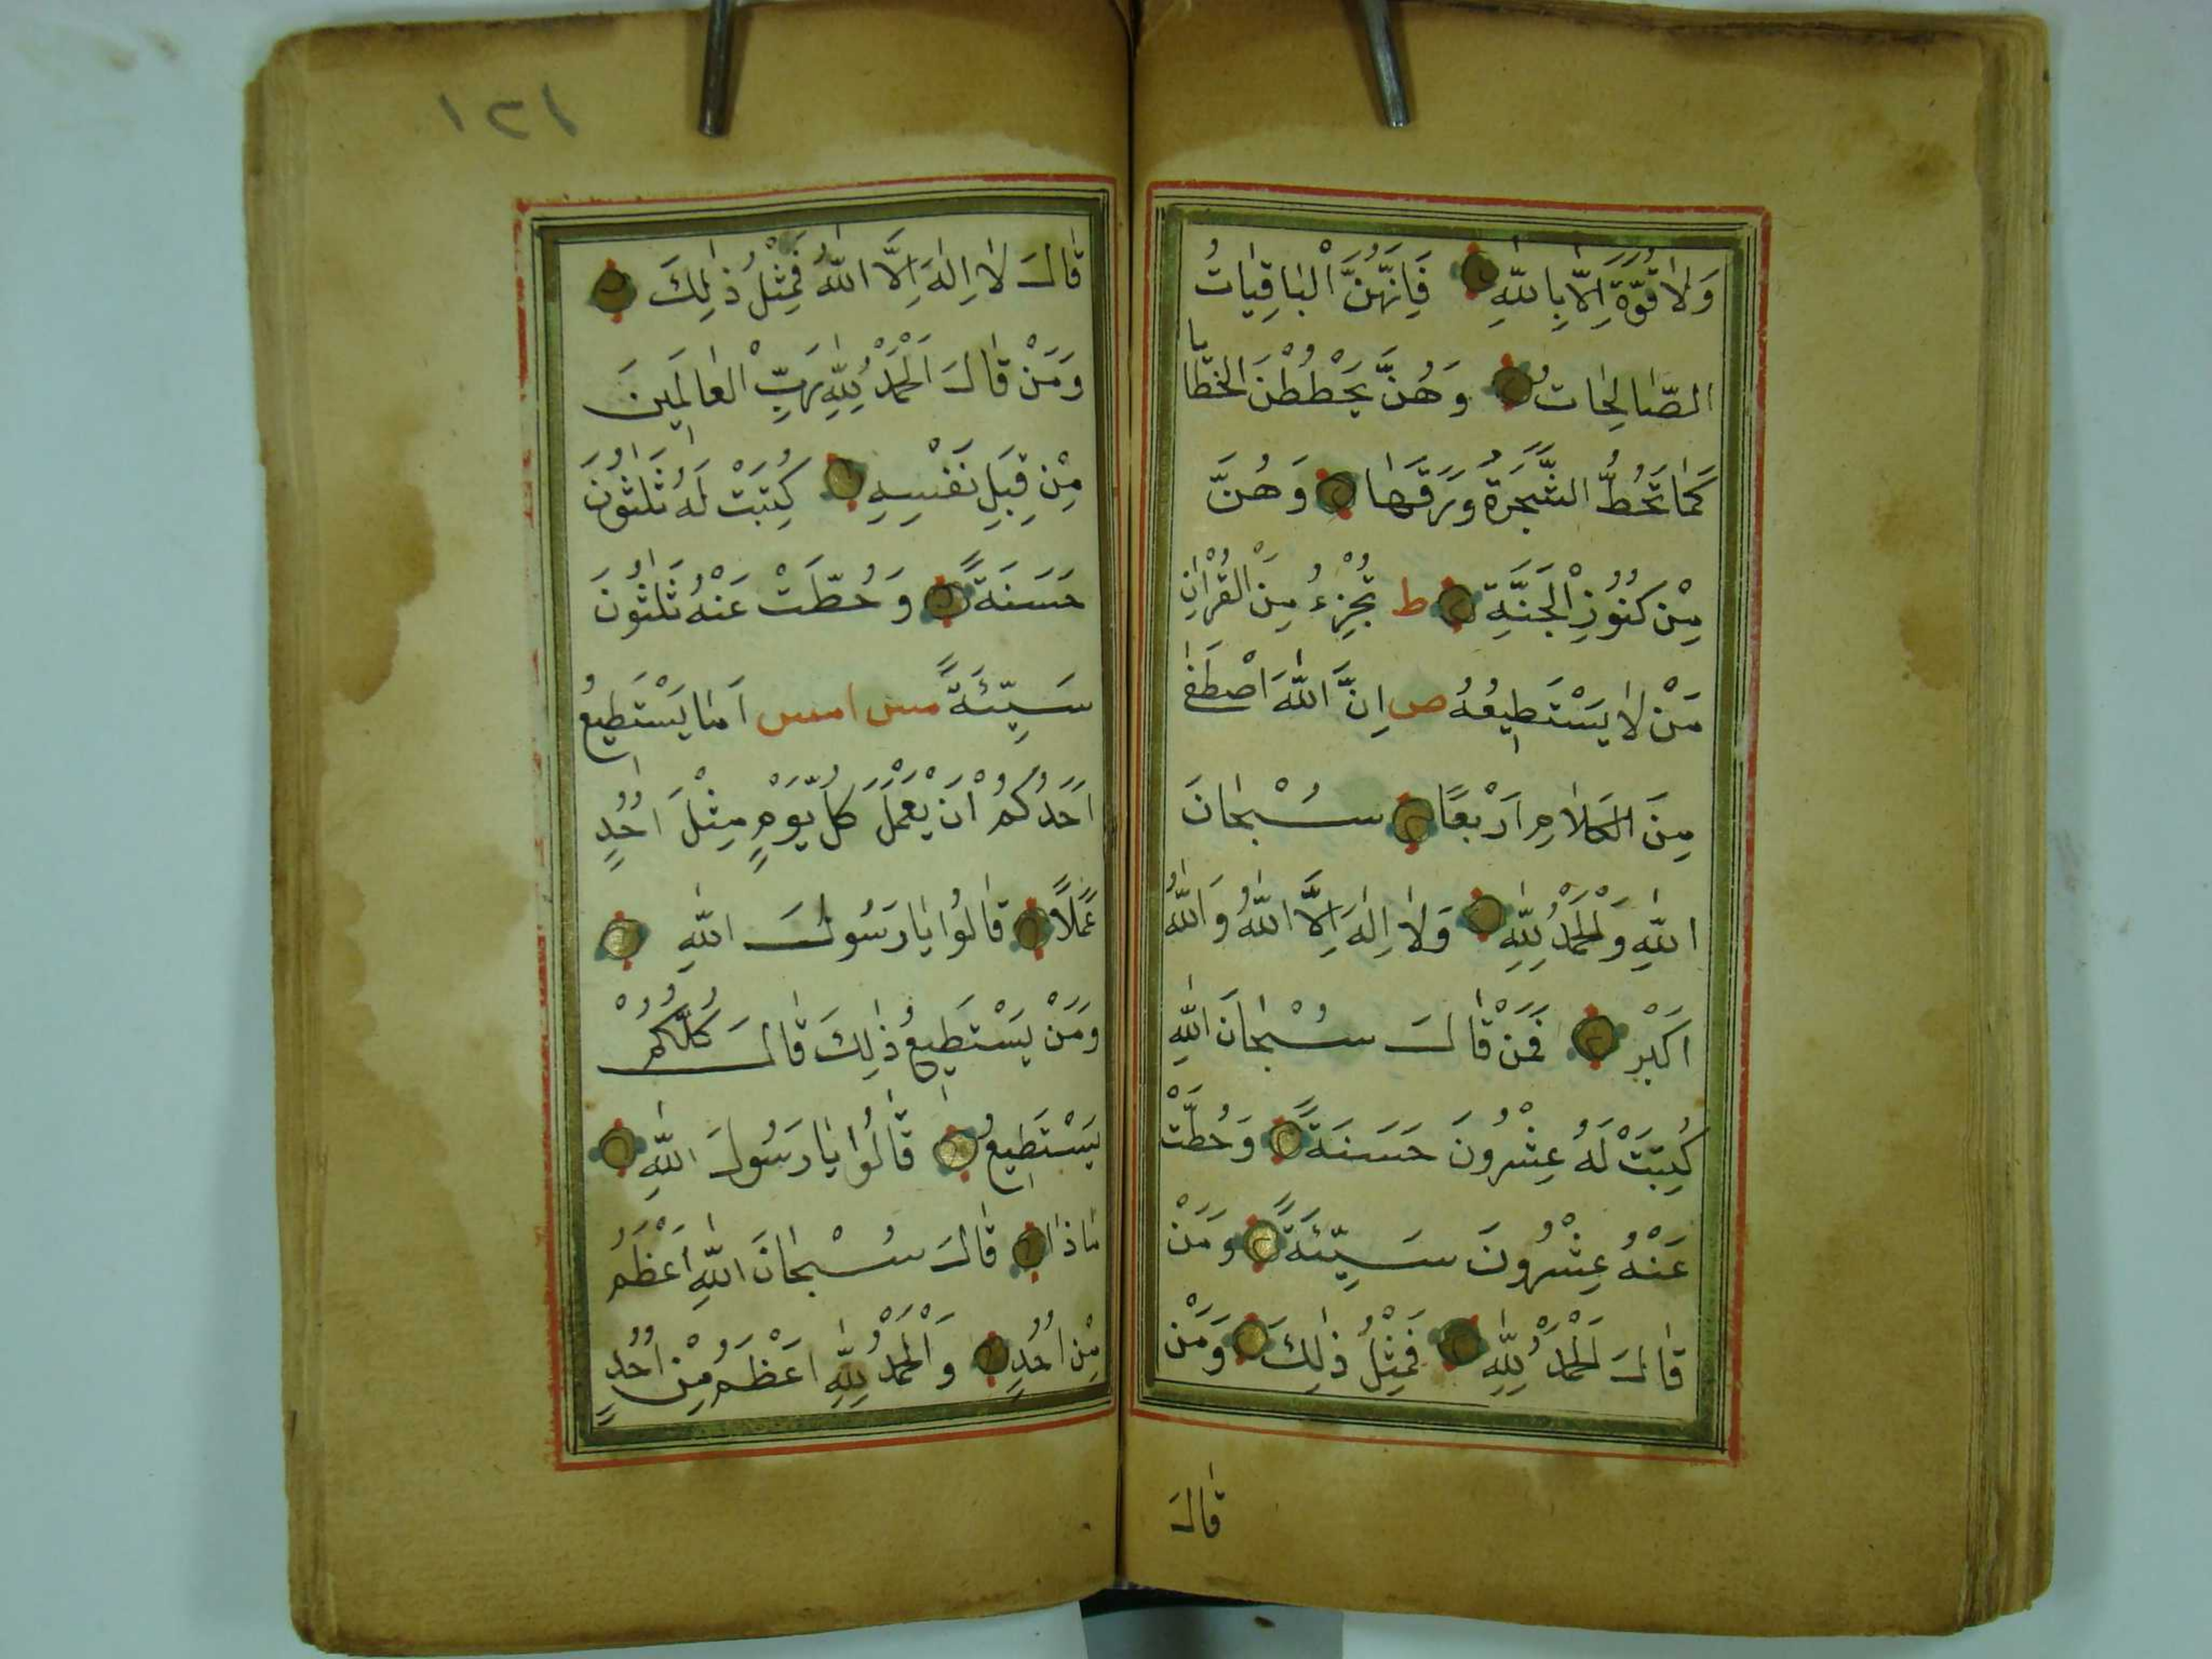 وَلَا قُوَّةَ اِلَّا بِاللّٰهِ فَاِنَّهُنَّ الْبَاقِيَاتُ
الصَّالِحَاتُ وَهُنَّ يَحْطُطْنَ الْخَطَايَا
كَمَا تَحُطُّ الشَّجَرَةُ وَرَقَهَا وَهُنَّ
مِنْ كُنُوزِ الْجَنَّةِ ط تُجْزِءُ مِنَ الْقُرْاٰنِ
مَنْ لَا يَسْتَطِيعُهُ ص اِنَّ اللّٰهَ اصْطَفٰى
مِنَ الْكَلَامِ اَرْبَعًا سُبْحَانَ
اللّٰهِ وَالْحَمْدُ لِلّٰهِ وَلَا اِلٰهَ اِلَّا اللّٰهُ وَاللّٰهُ
اَكْبَرُ فَمَنْ قَالَ سُبْحَانَ اللّٰهِ
كُتِبَتْ لَهُ عِشْرُونَ حَسَنَةً وَحُطَّتْ
عَنْهُ عِشْرُونَ سَيِّئَةً وَمَنْ
قَالَ الْحَمْدُ لِلّٰهِ فَمِثْلُ ذٰلِكَ وَمَنْ
قَالَ
١٢١
قَالَ لَا اِلٰهَ اِلَّا اللّٰهُ فَمِثْلُ ذٰلِكَ
وَمَنْ قَالَ اَلْحَمْدُ لِلّٰهِ رَبِّ الْعَالَمِينَ
مِنْ قِبَلِ نَفْسِهِ كُتِبَتْ لَهُ ثَلٰثُونَ
حَسَنَةً وَحُطَّتْ عَنْهُ ثَلٰثُونَ
سَيِّئَةً مس امس اَمَا يَسْتَطِيعُ
اَحَدُكُمْ اَنْ يَعْمَلَ كُلَّ يَوْمٍ مِثْلَ اُحُدٍ
عَمَلًا قَالُوا يَا رَسُولَ اللّٰهِ
وَمَنْ يَسْتَطِيعُ ذٰلِكَ قَالَ كُلُّكُمْ
يَسْتَطِيعُ قَالُوا يَا رَسُولَ اللّٰهِ
مَاذَا قَالَ سُبْحَانَ اللّٰهِ اَعْظَمُ
مِنْ اُحُدٍ وَالْحَمْدُ لِلّٰهِ اَعْظَمُ مِنْ اُحُدٍ